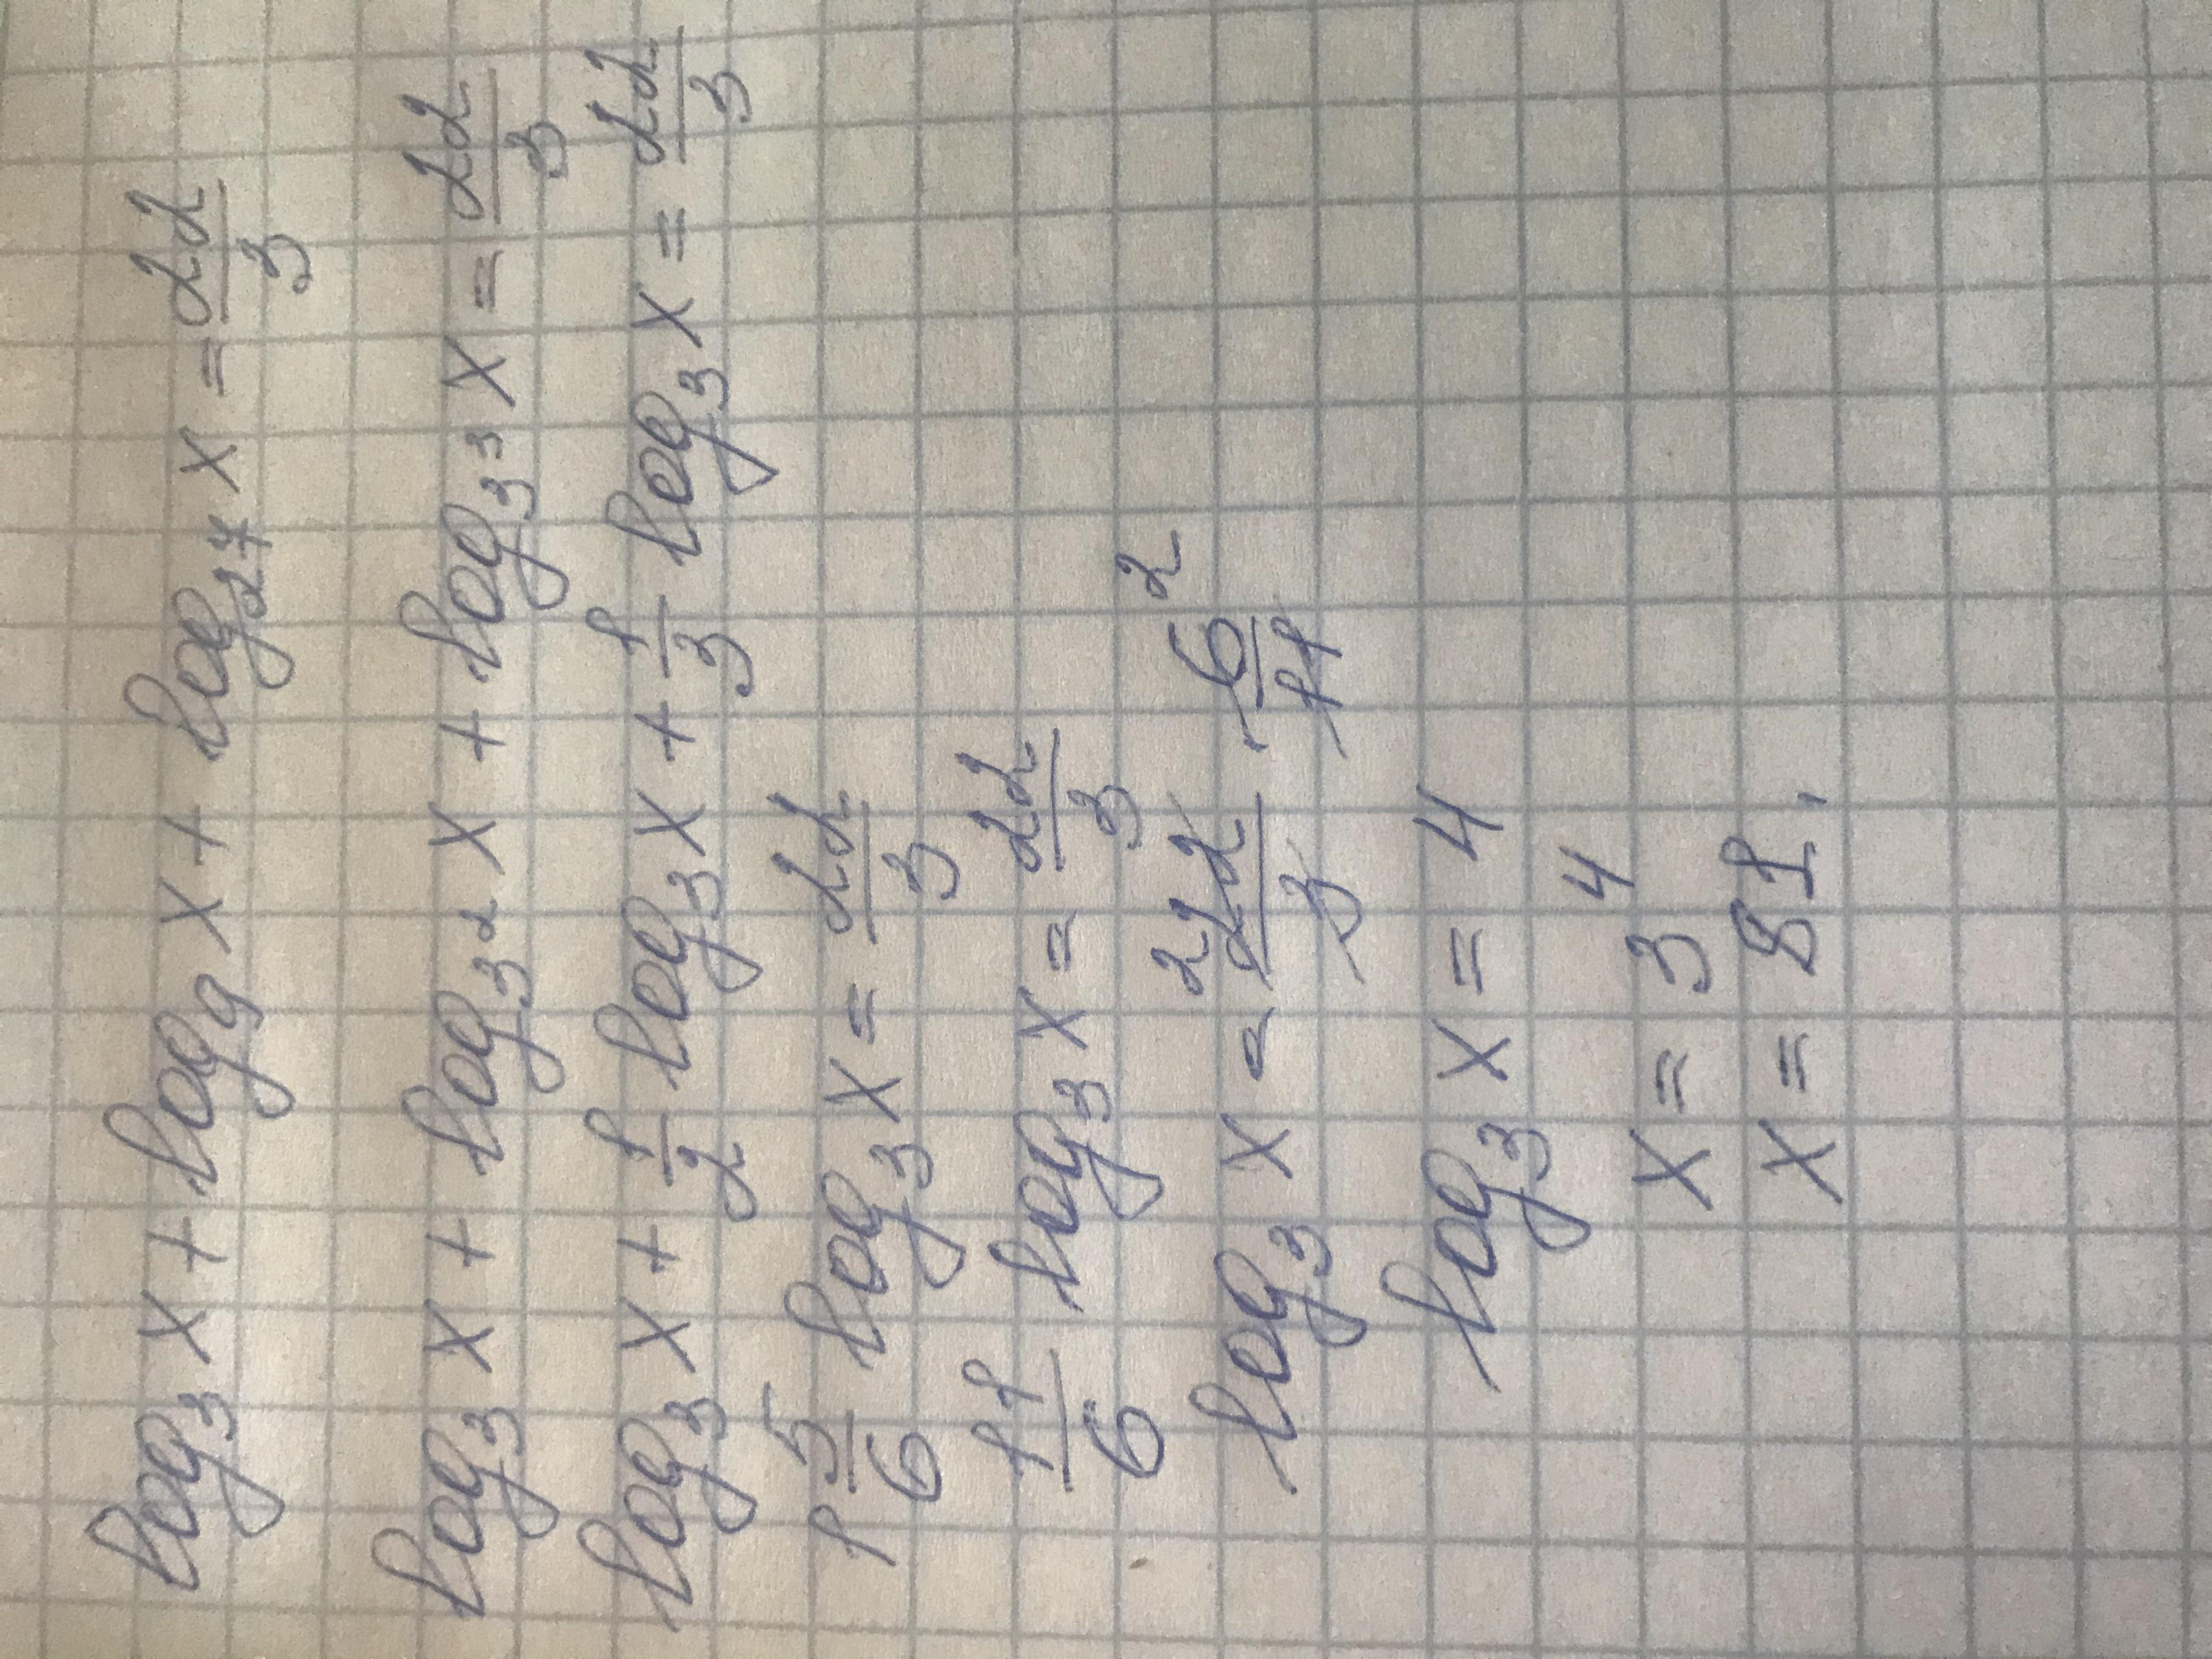 log₃ x + log₉ x + log₂₇ x = 22/3
log₃ x + log_{3²} x + log_{3³} x = 22/3
log₃ x + 1/2 log₃ x + 1/3 log₃ x = 22/3
1 5/6 log₃ x = 22/3
11/6 log₃ x = 22/3
log₃ x = ²22/3 · 6²/11
log₃ x = 4
x = 3⁴
x = 81.